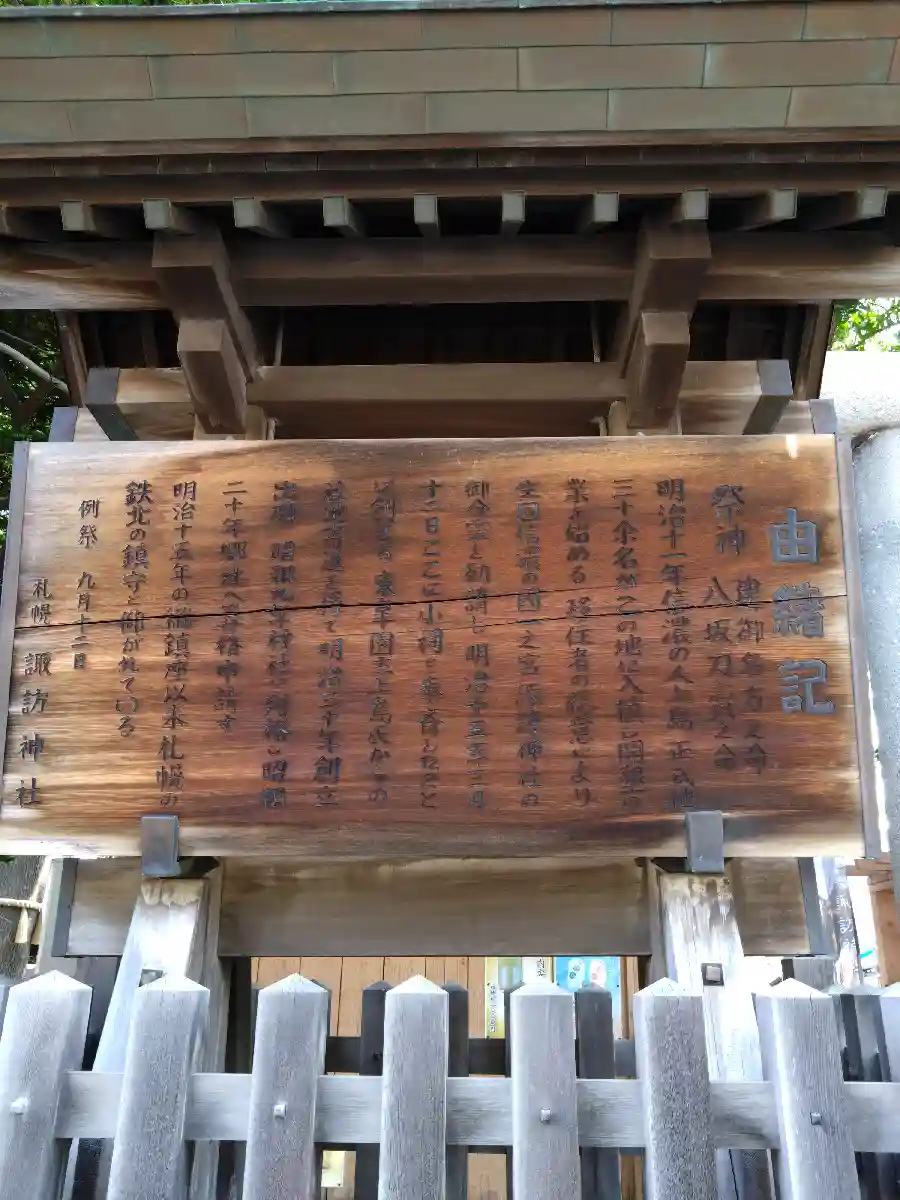 由緒記
祭神 建御名方之命
八坂刀売之命
明治十一年信濃の人上島正氏他
三十余名がこの地に入植し開墾の
業を始める 移住者の総意により
生国信濃の国一之宮諏訪神社の
御分霊を勧請し明治十五年三月
十二日ここに小祠を奉斎したこと
に創まる 東皐園主上島氏からの
境内 明治三十年創立
出願 昭和 年村社に列格し昭和
二十年郷社へ昇格申請す
明治十五年の御鎮座以来札幌の
鉄北の鎮守と仰がれている
例祭 九月十二日
札幌 諏訪神社
諏訪神